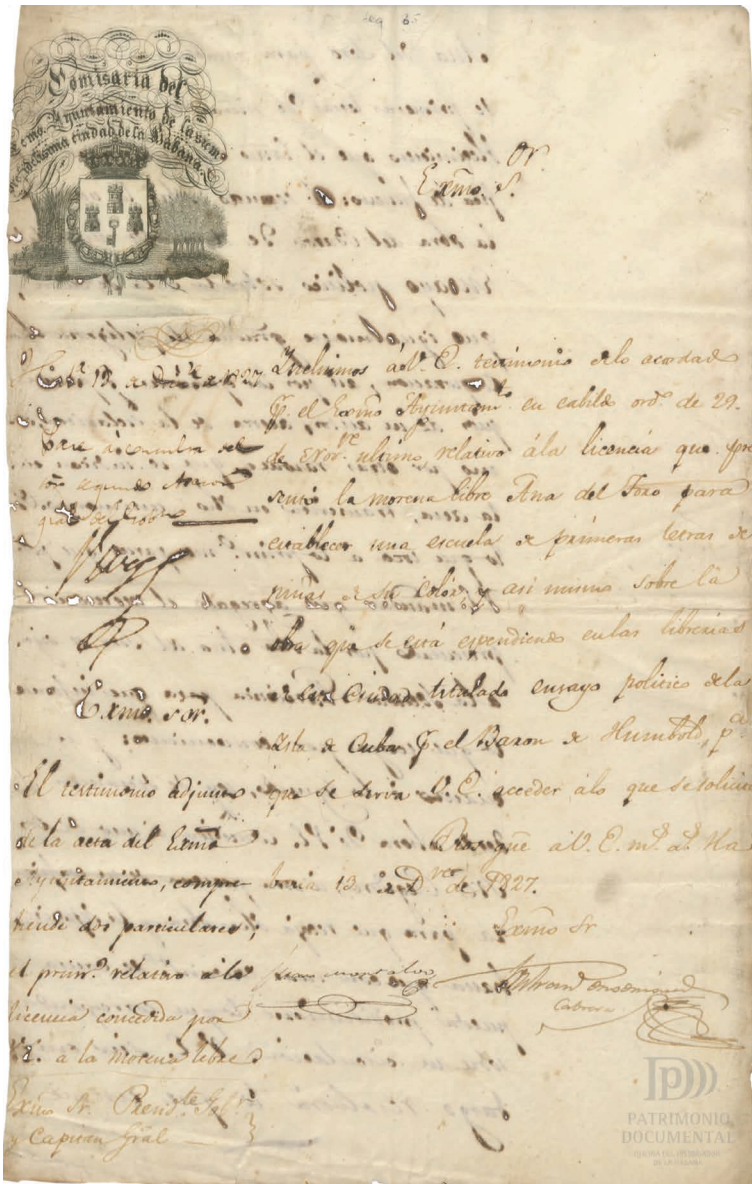 Comisaria del
Excmo. Ayuntamiento de la siem
pre fidelisima ciudad de la Habana.
Exmo. S.or
Incluimos á V. E. testimonio de lo acordado
p.r el Exmo Ayuntam.to en cabildo ord.o de 29.
de ultimo, relativo á la licencia que pre
sentó la morena libre Ana del Toro para
establecer una escuela de primeras letras de
niñas de su color, y asi mismo sobre la
obra que se está espendiendo en las librerias
de esta Ciudad titulado ensayo politico de la
Isla de Cuba p.r el Baron de Humbold, p.a
que se sirva V. E. acceder á lo que se solicita
Dios gue á V. E. m.s a.s Ha
bana 13 de D.bre de 1827.
Exmo Sr
Juan Montalvo
Cabrera
Hab.a 19 de 1827
Pase
Exmo. Sor.
El testimonio adjunto
de la acta del Exmo
Ayuntamiento, compre
hende dos particulares;
el prim.o relativo a la
licencia concedida por
V.E. a la morena libre
Exmo Sr. Presid.te Gob.r
y Capitan Gral
PATRIMONIO
DOCUMENTAL
OFICINA DEL HISTORIADOR
DE LA HABANA